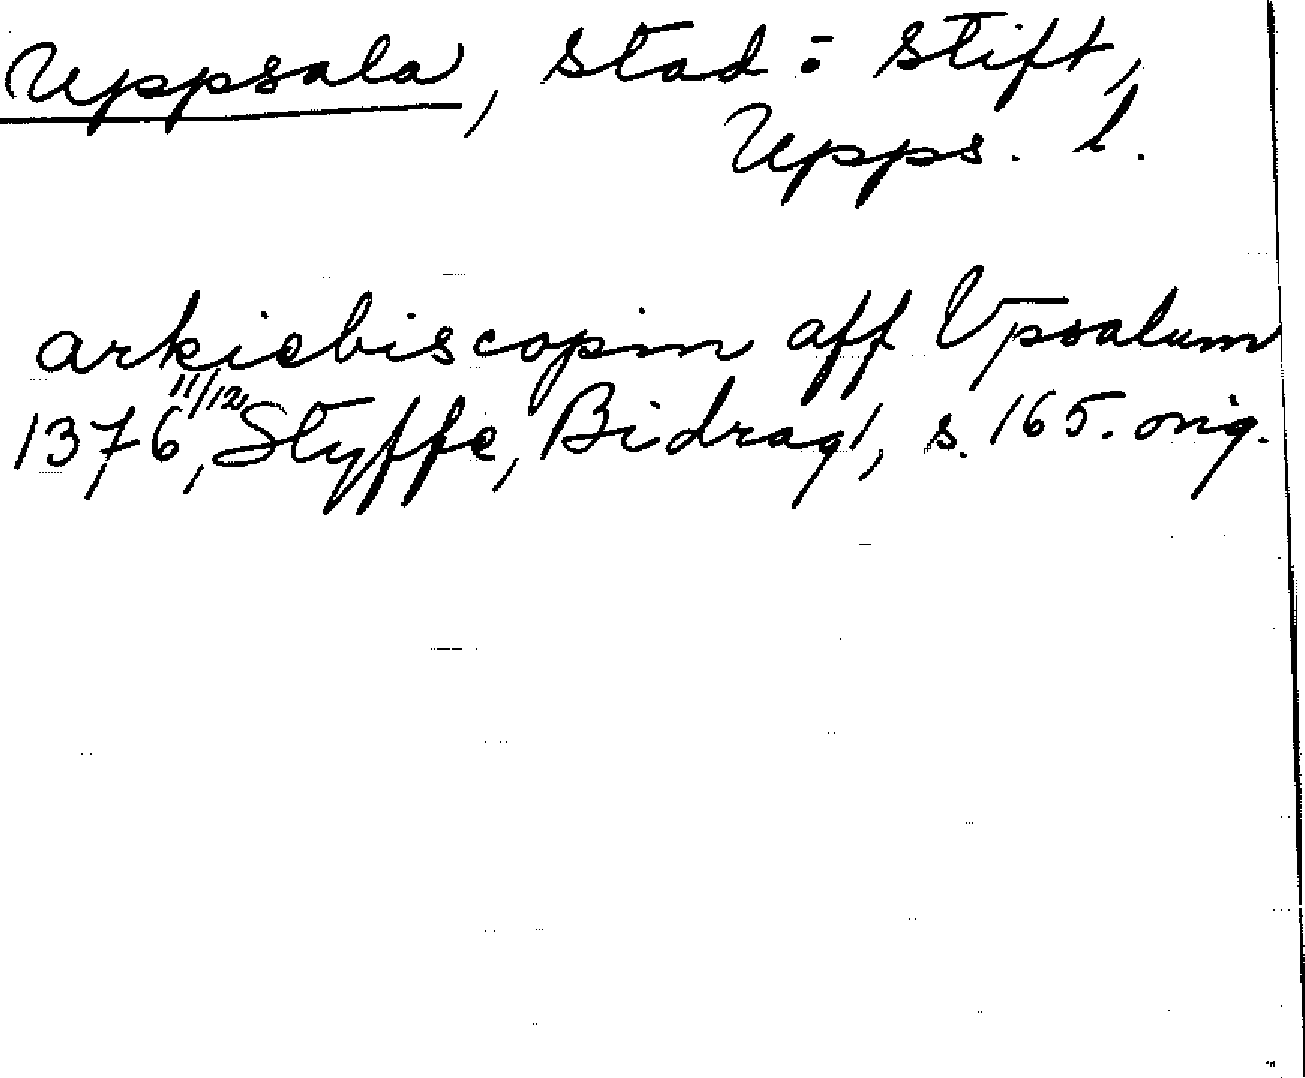 Uppsala, stad = stift,
Upps. l.
arkiebiscopin aff Vpsalum
1376 11/12, Styffe, Bidrag 1, s. 165. orig.